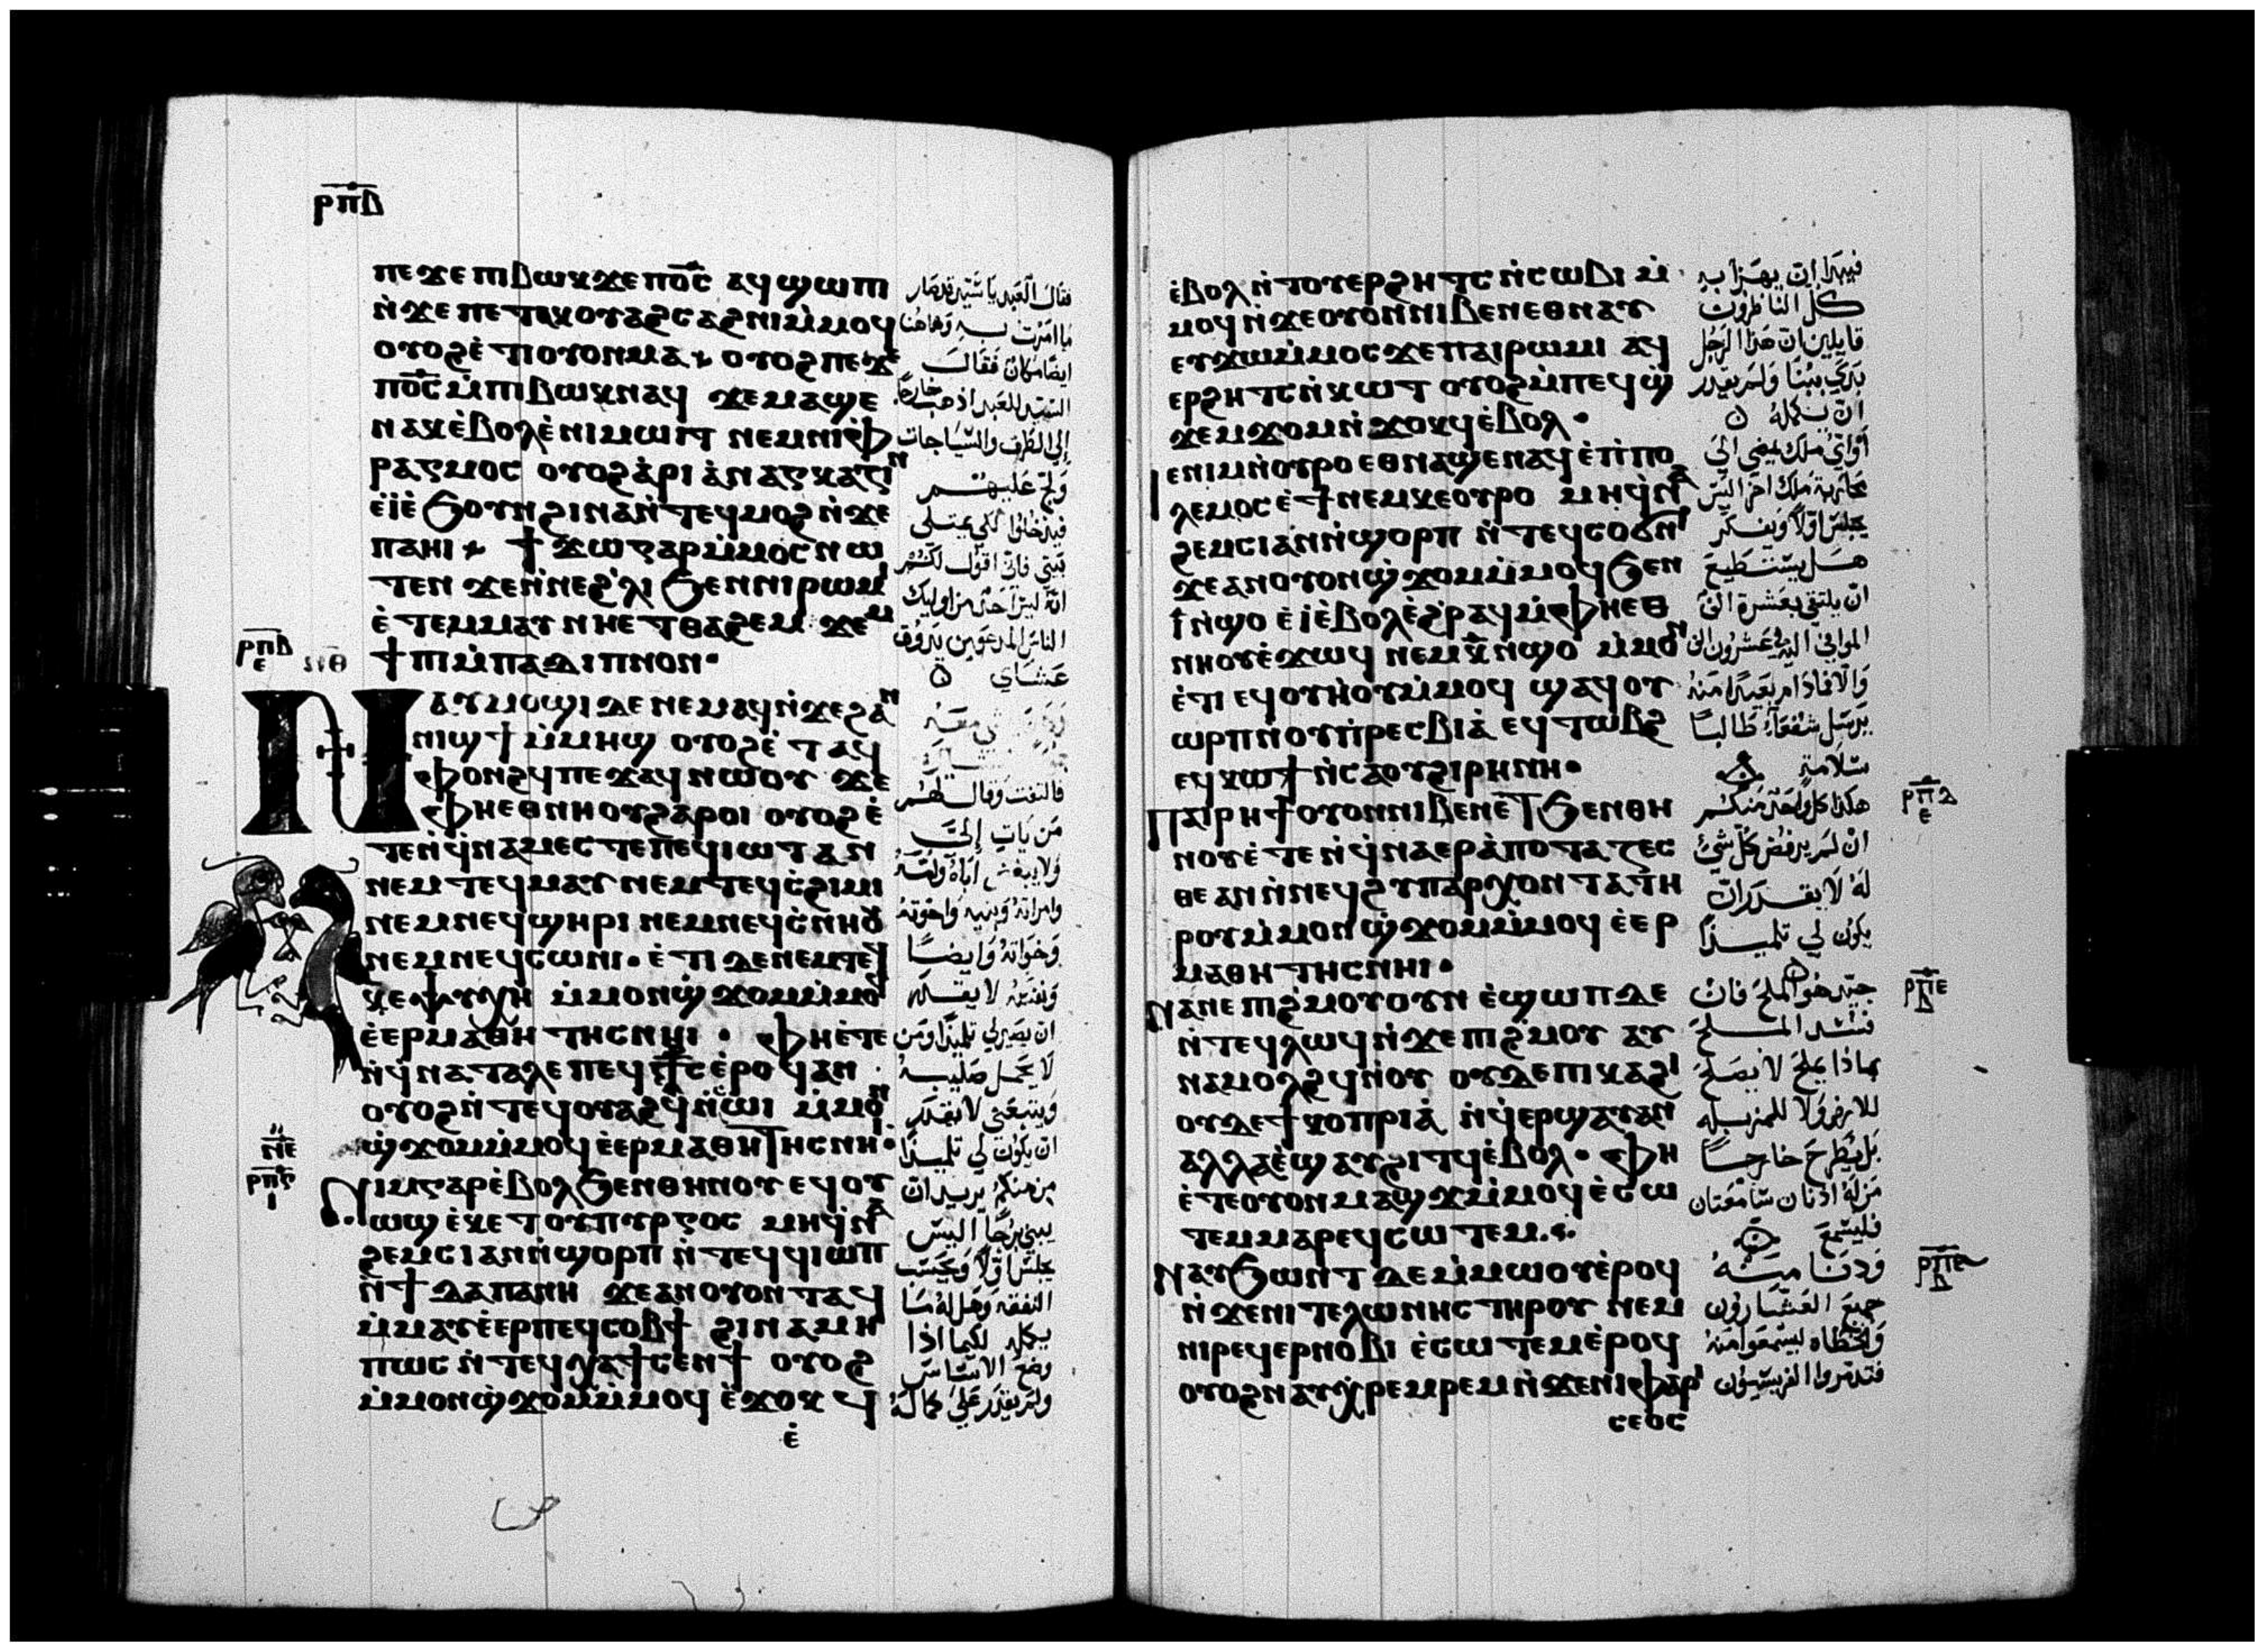 ⲣⲡⲃ
ⲡⲉϫⲉ ⲡⲓⲃⲱⲕ ϫⲉ ⲡⲟ̅ⲥ̅ ⲁϥϣⲱⲡⲓ
ⲛ̇ϫⲉ ⲡⲉⲧⲁⲕⲟⲩⲁϩⲥⲁϩⲛⲓ ⲙ̇ⲙⲟϥ
ⲟⲩⲟϩ ⲉ̇ⲧⲓ ⲟⲩⲟⲛ ⲙⲁ ⲟⲩⲟϩ ⲡⲉϫⲉ
ⲡⲟ̅ⲥ̅ ⲙ̇ⲡⲓⲃⲱⲕ ⲛⲁϥ ϫⲉ ⲙⲁϣⲉ
ⲛⲁⲕ ⲉ̇ⲃⲟⲗ ⲉ̇ⲛⲓⲙⲱⲓⲧ ⲛⲉⲙ ⲛⲓⲫ
ⲣⲁⲅⲙⲟⲥ ⲟⲩⲟϩ ⲁ̇ⲣⲓ ⲁ̇ⲛⲁⲅⲕⲁⲍⲓⲛ
ⲉ̇ⲓ̇ ⲉ̇ϧⲟⲩⲛ ϩⲓⲛⲁ ⲛ̇ⲧⲉϥⲙⲟϩ ⲛ̇ϫⲉ
ⲡⲁⲏⲓ ϯϫⲱ ⲅⲁⲣ ⲙ̇ⲙⲟⲥ ⲛⲱ
ⲧⲉⲛ ϫⲉ ⲛ̇ⲛⲉϩ̇ⲗⲓ ϧⲉⲛ ⲛⲓⲣⲱⲙⲓ
ⲉ̇ⲧⲉⲙⲙⲁⲩ ⲛⲏⲉⲧⲑⲁϩⲉⲙ ϫⲉⲙ
ϯⲡⲓ ⲙ̇ⲡⲁⲇⲓⲡⲛⲟⲛ·
ⲣⲡⲃ
ⲉ
Ⲛⲁⲩⲙⲟϣⲓ ⲇⲉ ⲛⲉⲙⲁϥ ⲛ̇ϫⲉ ϩⲁⲛ
ⲛⲓϣϯ ⲙ̇ⲙⲏϣ ⲟⲩⲟϩ ⲉ̇ⲧⲁϥ
ⲫⲟⲛϩϥ ⲡⲉϫⲁϥ ⲛⲱⲟⲩ ϫⲉ
ⲫⲏⲉⲑⲛⲏⲟⲩ ϩⲁⲣⲟⲓ ⲟⲩⲟϩ ⲉ̇
ⲧⲉⲛ̇ϥⲛⲁⲙⲉⲥⲧⲉ ⲡⲉϥⲓⲱⲧ ⲁⲛ
ⲛⲉⲙ ⲧⲉϥⲙⲁⲩ ⲛⲉⲙ ⲧⲉϥⲥ̇ϩⲓⲙⲓ
ⲛⲉⲙ ⲛⲉϥϣⲏⲣⲓ ⲛⲉⲙ ⲛⲉϥⲥ̇ⲛⲏⲟⲩ
ⲛⲉⲙ ⲛⲉϥⲥⲱⲛⲓ· ⲉ̇ⲧⲓ ⲇⲉ ⲛⲉⲙ ⲧⲉϥ
ⲕⲉⲯⲩⲭⲏ ⲙ̇ⲙⲟⲛϣ̇ϫⲟⲙ ⲙ̇ⲙⲟϥ
ⲉ̇ⲉⲣⲙⲁⲑⲏⲧⲏⲥ ⲛⲏⲓ· ⲫⲏⲉ̇ⲧⲉ
ⲛ̇ϥⲛⲁⲧⲁⲗⲉ ⲡⲉϥⲥ̅ⲧ̅ⲥ̅ ⲉ̇ⲣⲟϥ ⲁⲛ
ⲟⲩⲟϩ ⲛ̇ⲧⲉϥⲟⲩⲁϩϥ ⲛ̇ⲥⲱⲓ ⲙ̇ⲙⲟⲛ
ϣ̇ϫⲟⲙ ⲙ̇ⲙⲟϥ ⲉ̇ⲉⲣⲙⲁⲑⲏⲧⲏⲥ ⲛⲏⲓ·
ⲛⲉ
ⲣⲡⲅ
ⲓ
Ⲛⲓⲙ ⲅⲁⲣ ⲉ̇ⲃⲟⲗ ϧⲉⲛ ⲑⲏⲛⲟⲩ ⲉϥⲟⲩ
ⲱϣ ⲉ̇ⲕⲉⲧ ⲟⲩⲡⲩⲣⲅⲟⲥ ⲙⲏ ϥ̇ⲛⲁ
ϩⲉⲙⲥⲓ ⲁⲛ ⲛ̇ϣⲟⲣⲡ ⲛ̇ⲧⲉϥϥⲓⲱⲡ
ⲛ̇ϯⲇⲁⲡⲁⲛⲏ ϫⲉ ⲁⲛ ⲟⲩⲟⲛⲧⲁϥ
ⲙ̇ⲙⲁⲩ ⲉ̇ⲉⲣⲡⲉϥⲥⲟⲃϯ ϩⲓⲛⲁ ⲙⲏ
ⲡⲱⲥ ⲛ̇ⲧⲉϥⲭⲁϯⲥⲉⲛϯ ⲟⲩⲟϩ
ⲙ̇ⲙⲟⲛϣ̇ϫⲟⲙ ⲙ̇ⲙⲟϥ ⲉ̇ϫⲟⲕϥ
ⲉ̇
فقال العبد يا سيد قد صار
ما امرت به وهاهنا
ايضا مكان فقال
السيد للعبد اذهب خارجا
إلى الطرق والسياجات
ولج عليهم
فيدخلوا لكي يمتلى
بيتي فاني اقول لكم
انه ليس احد من اوليك
الناس المدعوين يذوق
عشاي
فالتفت وقال لهم
من يات إلي
ولا يبغض اباه وامه
وامراته وبنيه واخوته
وخواته وايضا
ونفسه لا يقدر
ان يصير لي تلميذا ومن
لا يحمل صليبه
ويتبعني لا يقدر
ان يكون لي تلميذا
من منكم يريد ان
يبني برجا اليس
يجلس اولا ويحسب
النفقة وهل له ما
يكمله لكيما اذا
وضع الاساس
ولم يقدر على كماله
ⲉ̇ⲃⲟⲗ ⲛ̇ⲧⲟⲩⲉⲣϩⲏⲧⲥ ⲛ̇ⲥⲱⲃⲓ ⲙ̇
ⲙⲟϥ ⲛ̇ϫⲉ ⲟⲩⲟⲛ ⲛⲓⲃⲉⲛ ⲉⲑⲛⲁⲩ
ⲉⲩϫⲱ ⲙ̇ⲙⲟⲥ ϫⲉ ⲡⲁⲓⲣⲱⲙⲓ ⲁϥ
ⲉⲣϩⲏⲧⲥ ⲛ̇ⲕⲱⲧ ⲟⲩⲟϩ ⲙ̇ⲡⲉϥϣ̇
ϫⲉⲙϫⲟⲙ ⲛ̇ϫⲟⲕϥ ⲉ̇ⲃⲟⲗ·
Ⲓⲉ ⲛⲓⲙ ⲛ̇ⲟⲩⲣⲟ ⲉⲑⲛⲁϣⲉ ⲛⲁϥ ⲉ̇ⲡⲓⲡⲟ
ⲗⲉⲙⲟⲥ ⲉ̇ϯ ⲛⲉⲙ ⲕⲉⲟⲩⲣⲟ ⲙⲏ ϥ̇ⲛⲁ
ϩⲉⲙⲥⲓ ⲁⲛ ⲛ̇ϣⲟⲣⲡ ⲛ̇ⲧⲉϥⲥⲟϭⲛⲓ
ϫⲉ ⲁⲛ ⲟⲩⲟⲛϣ̇ϫⲟⲙ ⲙ̇ⲙⲟϥ ϧⲉⲛ
ⲓ̅ ⲛ̇ϣⲟ ⲉ̇ⲓ̇ ⲉ̇ⲃⲟⲗ ⲉ̇ϩ̇ⲣⲁϥ ⲙ̇ⲫⲏⲉⲑ
ⲛⲏⲟⲩ ⲉ̇ϫⲱϥ ⲛⲉⲙ ⲕ̅ ⲛ̇ϣⲟ ⲙ̇ⲙⲟⲛ
ⲉ̇ⲧⲓ ⲉϥⲟⲩⲏⲟⲩ ⲙ̇ⲙⲟϥ ϣⲁϥⲟⲩ
ⲱⲣⲡ ⲛ̇ⲟⲩⲡ̇ⲣⲉⲥⲃⲓⲁ̇ ⲉϥⲧⲱⲃϩ
ⲉϥⲕⲱϯ ⲛ̇ⲥⲁ ⲟⲩϩⲓⲣⲏⲛⲏ·
Ⲡⲁⲓⲣⲏϯ ⲟⲩⲟⲛ ⲛⲓⲃⲉⲛ ⲉⲧϧⲉⲛ ⲑⲏ
ⲛⲟⲩ ⲉ̇ⲧⲉⲛ̇ϥⲛⲁⲉⲣⲁ̇ⲡⲟⲧⲁⲍⲉⲥ
ⲑⲉ ⲁⲛ ⲛ̇ⲛⲉϥϩⲩⲡⲁⲣⲭⲟⲛⲧⲁ ⲧⲏ
ⲣⲟⲩ ⲙ̇ⲙⲟⲛϣ̇ϫⲟⲙ ⲙ̇ⲙⲟϥ ⲉ̇ⲉⲣ
ⲙⲁⲑⲏⲧⲏⲥ ⲛⲏⲓ·
Ⲛⲁⲛⲉ ⲡⲓϩ̇ⲙⲟⲩ ⲟⲩⲛ ⲉ̇ϣⲱⲡ ⲇⲉ
ⲛ̇ⲧⲉϥⲗⲱϥ ⲛ̇ϫⲉ ⲡⲓϩ̇ⲙⲟⲩ ⲁⲩ
ⲛⲁⲙⲟⲗϩϥ ⲛ̇ⲟⲩ ⲟⲩⲇⲉ ⲡⲓⲕⲁϩⲓ
ⲟⲩⲇⲉ ϯⲕⲟⲡⲣⲓⲁ̇ ⲛ̇ϥ̇ⲉⲣϣⲁⲩ ⲁⲛ
ⲁⲗⲗⲁ ⲉ̇ϣⲁⲩϩⲓⲧϥ ⲉ̇ⲃⲟⲗ· ⲫⲏ
ⲉ̇ⲧⲉ ⲟⲩⲟⲛ ⲙⲁϣϫ ⲙ̇ⲙⲟϥ ⲉ̇ⲥⲱ
ⲧⲉⲙ ⲙⲁⲣⲉϥⲥⲱⲧⲉⲙ
Ⲛⲁⲩϧⲱⲛⲧ ⲇⲉ ⲙ̇ⲙⲱⲟⲩ ⲉ̇ⲣⲟϥ
ⲛ̇ϫⲉ ⲛⲓⲧⲉⲗⲱⲛⲏⲥ ⲧⲏⲣⲟⲩ ⲛⲉⲙ
ⲛⲓⲣⲉϥⲉⲣⲛⲟⲃⲓ ⲉ̇ⲥⲱⲧⲉⲙ ⲉ̇ⲣⲟϥ
ⲟⲩⲟϩ ⲛⲁⲩⲭⲣⲉⲙⲣⲉⲙ ⲛ̇ϫⲉ ⲛⲓⲫⲁⲣⲓ
ⲥⲉⲟⲥ
فيبدا ان يهزا به
كل الناظرون
قايلين ان هذا الرجل
بدي يبنا ولم يقدر
ان يكمله
او اي ملك يمضي الى
محاربة ملك اخر اليس
يجلس اولا ويفكر
هل يستطيع
ان يلتقي بعشرة الف
الموافي اليه في عشرون الف
والا فماذا م بعيدا منه
يرسل شفعاء طالبا
سلامة
هكذا كل احد منكم
ان لم يرفض كل شي
له لا يقدر ان
يكون لي تلميذا
جيد هو الملح فان
فسد الملح
بماذا يملح لا يصلح
للارض ولا للمزبلة
بل يطرح خارجا
من له اذنان سامعتان
فليسمع
ودنا منه
جميع العشارون
والخطاه ليسمعوا منه
فتذمروا الفريسيون
ⲣⲡⲇ
ⲉ
ⲣⲡⲉ
ⲃ